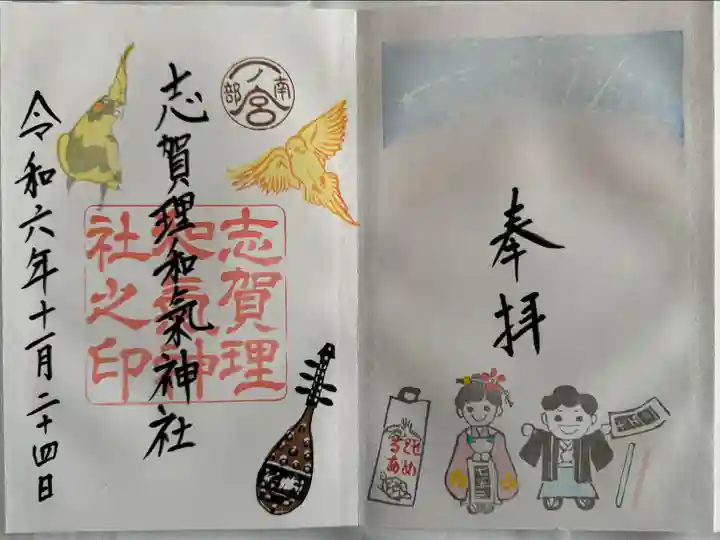 奉拝
七五三
志賀理和氣神社
南部一ノ宮
志賀理
和氣神
社之印
令和六年十一月二十四日